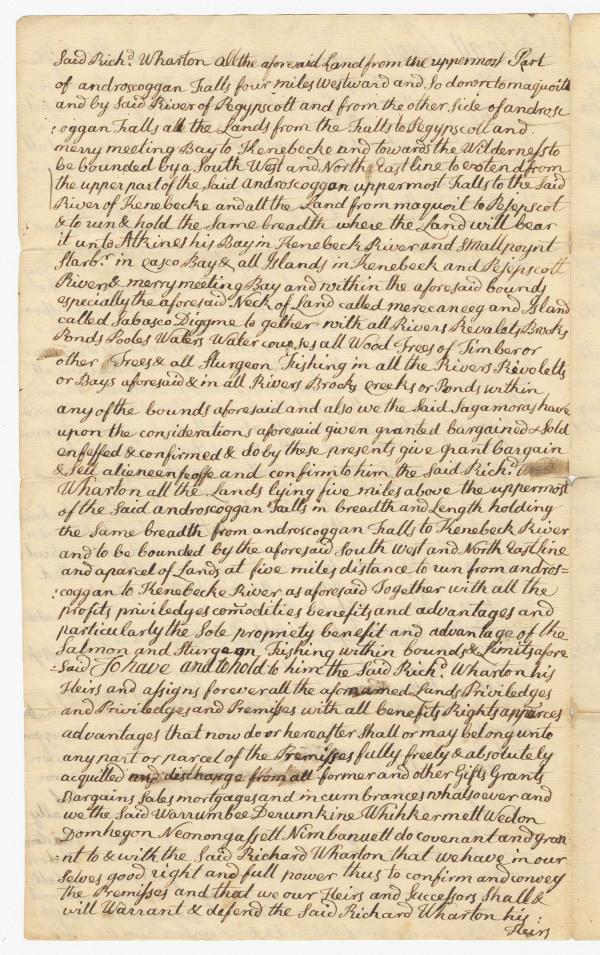 Said Richd. Wharton all the aforesaid Land from the uppermost Part
of androscoggan Falls four miles Westward and So down to maquoit
and by Said River of Pegypscott and from the other Side of androsc
:oggan Falls all the Lands from the Falls to Pegypscott and
merry meeting Bay to Kenebecke and towards the Wilderness to
be bounded by a South West and North East line to extend from
the upper part of the Said androscoggan uppermost Falls to the Said
River of Kenebecke and all the Land from maquoit to Pejepscot
& to run & hold the Same breadth where the Land will bear
it unto Atkines his Bay in Kenebeck River and Small poynt
Harbr. in Casco Bay & all Islands in Kenebeck and Pejepscott
River & merry meeting Bay and within the aforesaid bounds
especially the aforesaid Neck of Land called merecaneeg and Island
called Sabasco Diggine to gether with all Rivers Revalets Brooks
Ponds Pooles Waters Water courses all Wood Trees of Timber or
other Trees & all Sturgeon Fishing in all the Rivers Rivoletts
or Bays aforesaid & in all Rivers Brooks Creeks or Ponds within
any of the bounds aforesaid and also we the Said Sagamoras have
upon the considerations aforesaid given granted bargained & Sold
enfeffed & confirmed & do by these presents give grant bargain
& Sell alieneenfeoffe and confirm to him the Said Richd.
Wharton all the Lands lying five miles above the uppermost
of the Said androscoggan Falls in breadth and Length holding
the Same breadth from androscoggan Falls to Kenebeck River
and to be bounded by the aforesaid South West and North East line
and a parcel of Lands at five miles distance to run from andros=
:coggan to Kenebecke River as aforesaid Together with all the
profits priviledges comodities benefits and advantages and
particularly the Sole propriety benefit and advantage of the
Salmon and Sturgeon Fishing within bounds & Limits afore
:Said To have and to hold to him the Said Richd. Wharton his
Heirs and assigns forever all the afornamed Lands Priviledges
and Priviledges and Premises with all benefits Rights appurces
advantages that now do or hereafter Shall or may belong unto
any part or parcel of the Premisses fully freely & absolutely
acquitted and discharge from all former and other Gifts Grants
Bargains Sales mortgages and incumbrances whatsoever and
we the Said Warrumbee Derumkine Whihkermett Wedon
Domhegon Neonongassett Nimbanuell do covenant and gran
:nt to & with the Said Richard Wharton that we have in our
Selves good right and full power thus to confirm and convey
the Premisses and that we our Heirs and Successors Shall &
will Warrant & defend the Said Richard Wharton his :
Heirs